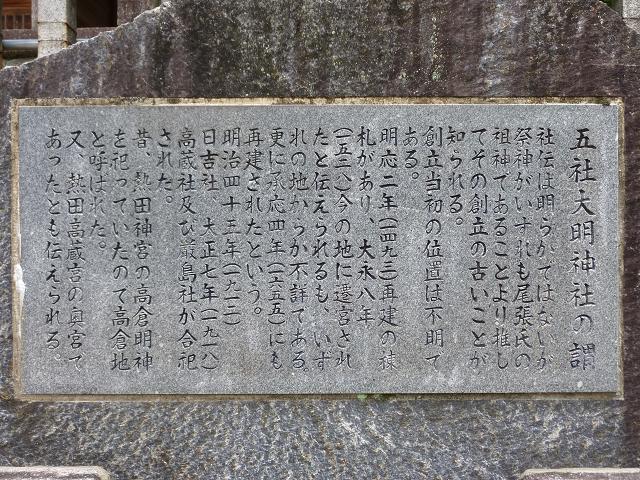 五社大明神社の謂
社伝は明らかではないが
祭神がいずれも尾張氏の
祖神であることより推し
てその創立の古いことが
知られる。
創立当初の位置は不明で
ある。
明応二年(一四九三)再建の棟
札があり、大永八年
(一五二八)今の地に遷宮され
たと伝えられるも、いず
れの地からか不詳である。
更に承応四年(一六五五)にも
再建されたという。
明治四十三年(一九一二)
日吉社、大正七年(一九一八)
高蔵社及び厳島社が合祀
された。
昔、熱田神宮の高倉明神
を祀っていたので高倉地
と呼ばれた。
又、熱田高蔵宮の奥宮で
あったとも伝えられる。